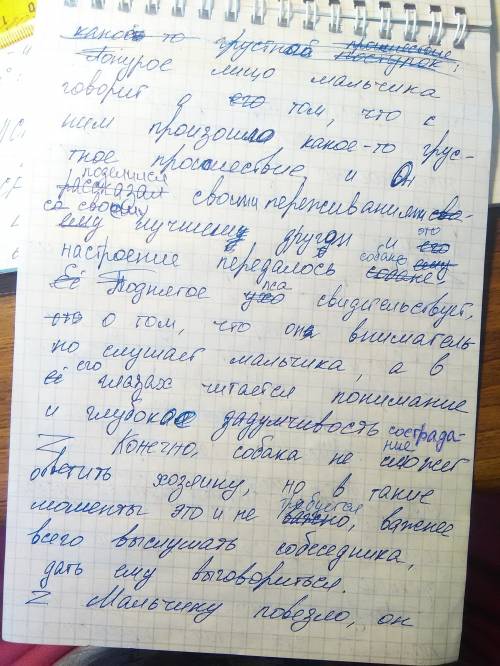 какое то грустное происшествие
Понурое лицо мальчика поступок.
говорит о его том, что с
ним произошло какое-то грус-
тное происшествие и Он
поделился
рассказал своими переживаниями сво-
со своим
ему лучшему другу и это его
настроение передалось собаке ему
собаке.
Её Поднятое ухо пса свидетельствует,
это о том, что она вниматель-
но слушает мальчика, а в
её его глазах читается понимание
и глубокая задумчивость сострада-
ние
Z Конечно, собака не сможет
ответить хозяину, но в такие
требуется
моменты это и не важно, важнее
всего выслушать собеседника,
дать ему выговориться.
Z Мальчику повезло, он